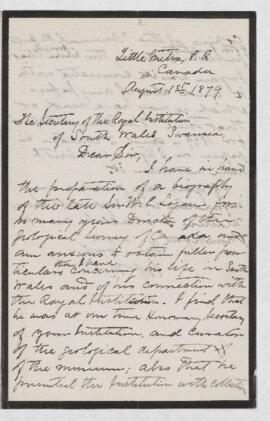 Little Metis, P. Q
Canada
August 1st 1879.
The Secretary of the Royal Institution
of South Wales Swansea,
Dear Sir,
I have in hand
the preparation of a biography
of the late Sir W. E. Logan, for
so many years Director of the
Geological Survey of Canada and
am anxious to obtain fuller par-
ticulars than I have
concerning his life in South
Wales and of his connection with
the Royal Institution. I find that
he was at one time Honorary Secretary
of your Institution, and Curator
of the geological department
of the museum; also that he
presented the Institution with collections